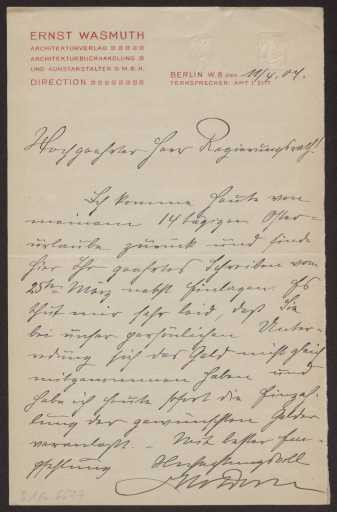 ERNST WASMUTH
ARCHITEKTURVERLAG
ARCHITEKTURBUCHHANDLUNG
UND KUNSTANSTALTEN G.M.B.H.
DIRECTION
BERLIN W. 8 DEN 11/4. 04.
FERNSPRECHER: AMT I
Hochgeehrter Herr Regierungsrath!
Ich komme heute von
meinem 14 tägigen Oster-
urlaube zurück und finde
hier Ihr geehrtes Schreiben vom
25ten März nebst Einlagen. Es
thut mir sehr leid, daß Sie
bei unsrer persönlichen Unter-
redung sich das Geld nicht gleich
mitgenommen haben und
habe ich heute sofort die Einzah-
lung der gewünschten Gelder
veranlaßt. - Mit bester Em-
pfehlung Hochachtungsvoll